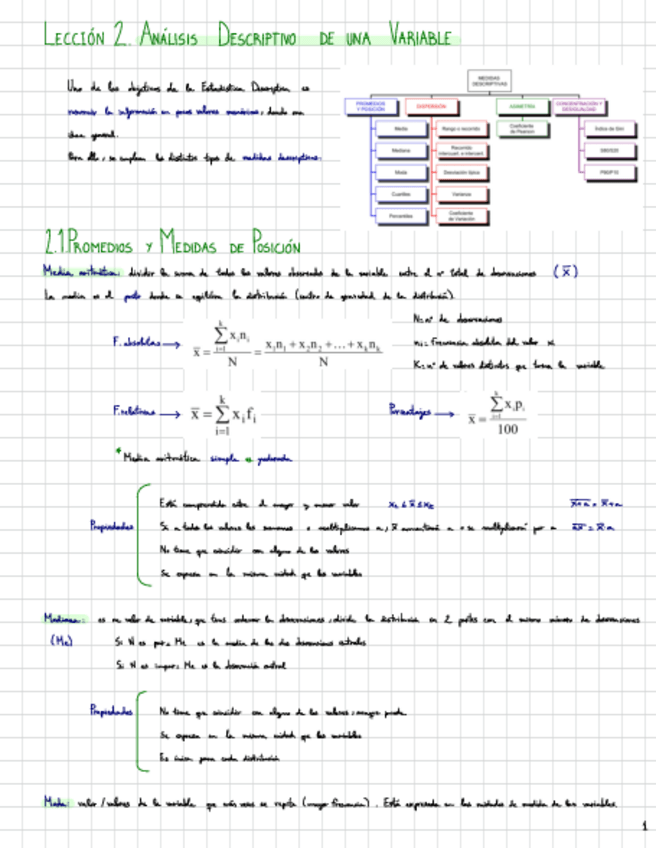 LECCIÓN 2. ANÁLISIS DESCRIPTIVO DE UNA VARIABLE
Uno de los objetivos de la Estadística Descriptiva es
resumir la información en pocos valores numéricos, dando una
idea general.
Para ello, se emplean los distintos tipos de medidas descriptivas.
MEDIDAS DESCRIPTIVAS
PROMEDIOS Y POSICIÓN
DISPERSIÓN
ASIMETRÍA
CONCENTRACIÓN Y DESIGUALDAD
Media
Rango o recorrido
Coeficiente de Pearson
Índice de Gini
Mediana
Recorrido
S80/S20
Moda
Desviación típica
P90/P10
Cuartiles
Varianza
Percentiles
Coeficiente de Variación
2.1. PROMEDIOS Y MEDIDAS DE POSICIÓN
Media aritmética: dividir la suma de todos los valores observados de la variable entre el nº total de observaciones (x̄)
La media es el punto donde se equilibra la distribución (centro de gravedad de la distribución).
N = nº de observaciones
F. absolutas → x̄ = ∑(i=1, k) xᵢnᵢ / N = (x₁n₁ + x₂n₂ + ... + xₖnₖ) / N
nᵢ = frecuencia absoluta del valor xᵢ
K = nº de valores distintos que toma la variable
F. relativas → x̄ = ∑(i=1, k) xᵢfᵢ
Porcentajes → x̄ = ∑(i=1, k) xᵢpᵢ / 100
* Media aritmética simple o ponderada
Propiedades
Está comprendida entre el mayor y menor valor
Si a todos los valores les sumamos o multiplicamos a, x̄ aumentará a o se multiplicará por a
No tiene que coincidir con alguno de los valores
Se expresa en la misma unidad que las variables
Mediana: es un valor de variable, que tras ordenar las observaciones, divide la distribución en 2 partes con el mismo número de observaciones
(Me) Si N es par: Me es la media de las dos observaciones centrales
Si N es impar: Me es la observación central
Propiedades
No tiene que coincidir con alguno de los valores, aunque puede.
Se expresa en la misma unidad que las variables
Es única para cada distribución
Moda: valor/valores de la variable que más veces se repite (mayor frecuencia). Está expresada en las unidades de medida de las variables.
1